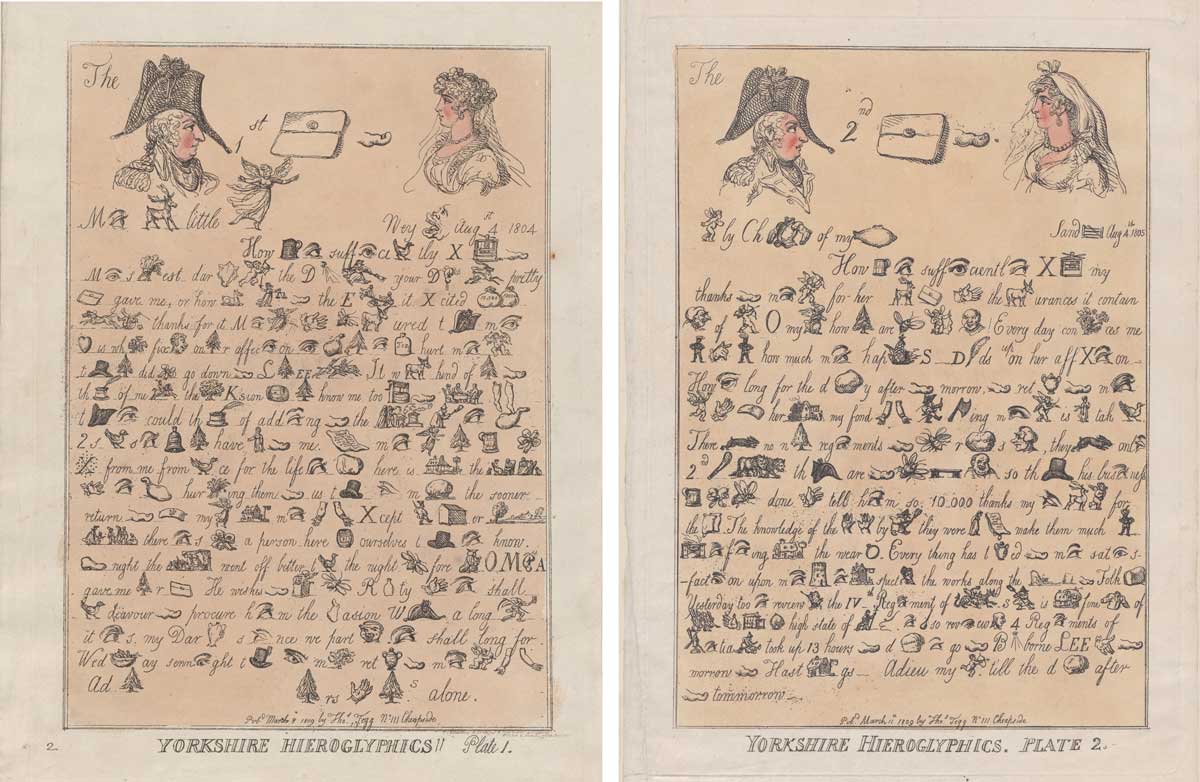 The
1st
M little
Wey Aug st 4 1804
How suff ci tly X
M s est. dar the D your D pretty
gave me, or how the E it X cited
thanks for it M ured t m
is wh fix on r affec on hurt m
t did go down L EE It w hend of
th of me the Ksion know me too
t could th of add ng the
2 s s have me m
from me from ce for the life here is the
hur ing them us t m the sooner
return my m Xcept or
there s a person here ourselves t know.
night the ment off better t the night fore OM A
gave me r He wishes R ty shall
deavour procure h m the Jasion W a long
it s, my Dar s nce we part s shall long for
Wed ay senn ght t m ret m
Ad rs s alone.
Pubd March 8 1809 by Thos Tegg No 111 Cheapside
2
YORKSHIRE HIEROGLYPHICS!! Plate 1.
The
2nd
by Ch of my
Sand Aug 4th 1805
How suff cientl X my
thanks m for her the urances it contain
of O my how are ! Every day con ces me
how much m hap S D ds on her aff X on
How long for the d y after morrow, ret m
her my fond ing m is tak
There no n reg ments r s, they ont
2d th are so th his bus ness
done tell h m so: 10,000 thanks my for
the The knowledge of the by they were make them much
f ing the wear Every thing has t ed m sat s
fact on upon m spect the works along the Folk
Yesterday too review the IVth Reg ment of s is fine of
high state of so rev w 4 Reg ments of
tia took up 13 hours d go B borne LEE
morrow Hast gs Adieu my tell the d after
tommorrow
Pubd March 11 1809 by Thos Tegg No 111 Cheapside
YORKSHIRE HIEROGLYPHICS. PLATE 2.